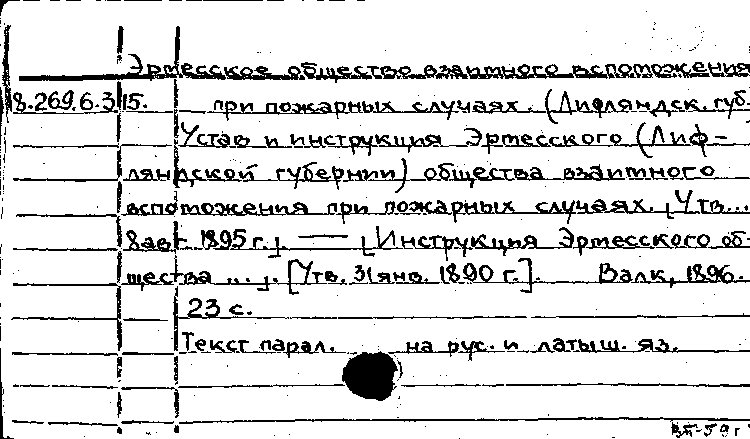 Эрмесское общество взаимного вспоможения
18.269.6.315. при пожарных случаях. (Лифляндск. губ.
Устав и инструкция Эрмесского (Лиф-
ляндской губернии) общества взаимного
вспоможения при пожарных случаях. [Утв...
8 авг. 1895 г.]. — [Инструкция Эрмесского об-
щества ...]. [Утв. 31 янв. 1890 г.]. Валк, 1896.
23 с.
Текст парал. на рус. и латыш. яз.